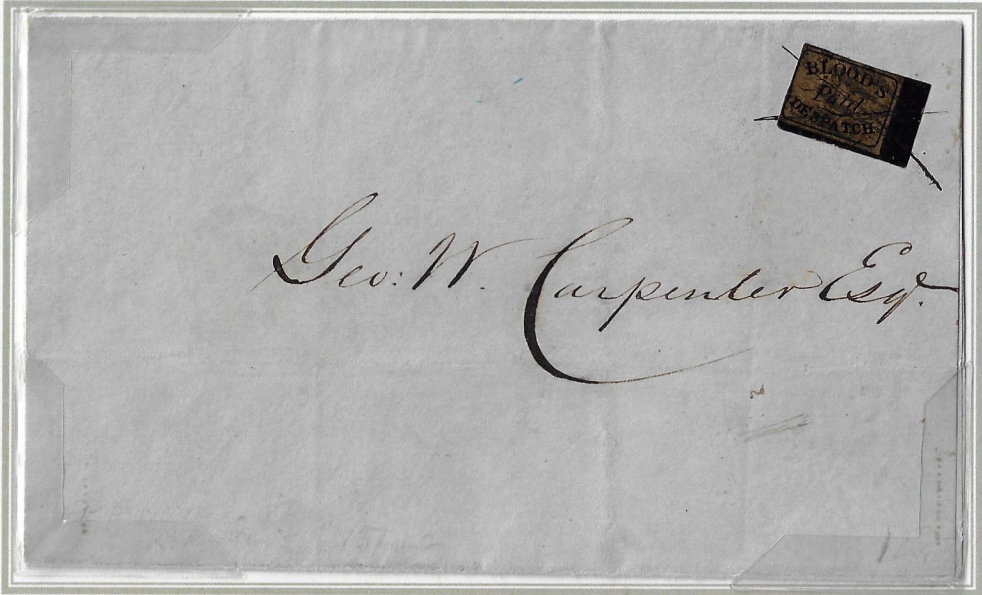 BLOOD'S
Paid
DESPATCH
Geo: W. Carpenter Esqr.